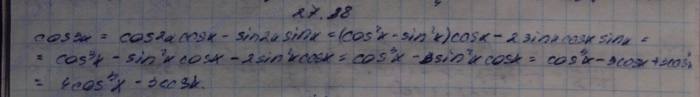 27.28
cos3x = cos2x cosx - sin2x sinx = (cos²x - sin²x) cosx - 2 sinx cosx sinx =
= cos³x - sin²x cosx - 2sin²x cosx = cos³x - 3sin²x cosx = cos³x - 3cosx + 3cos³x
= 4cos³x - 3cosx.